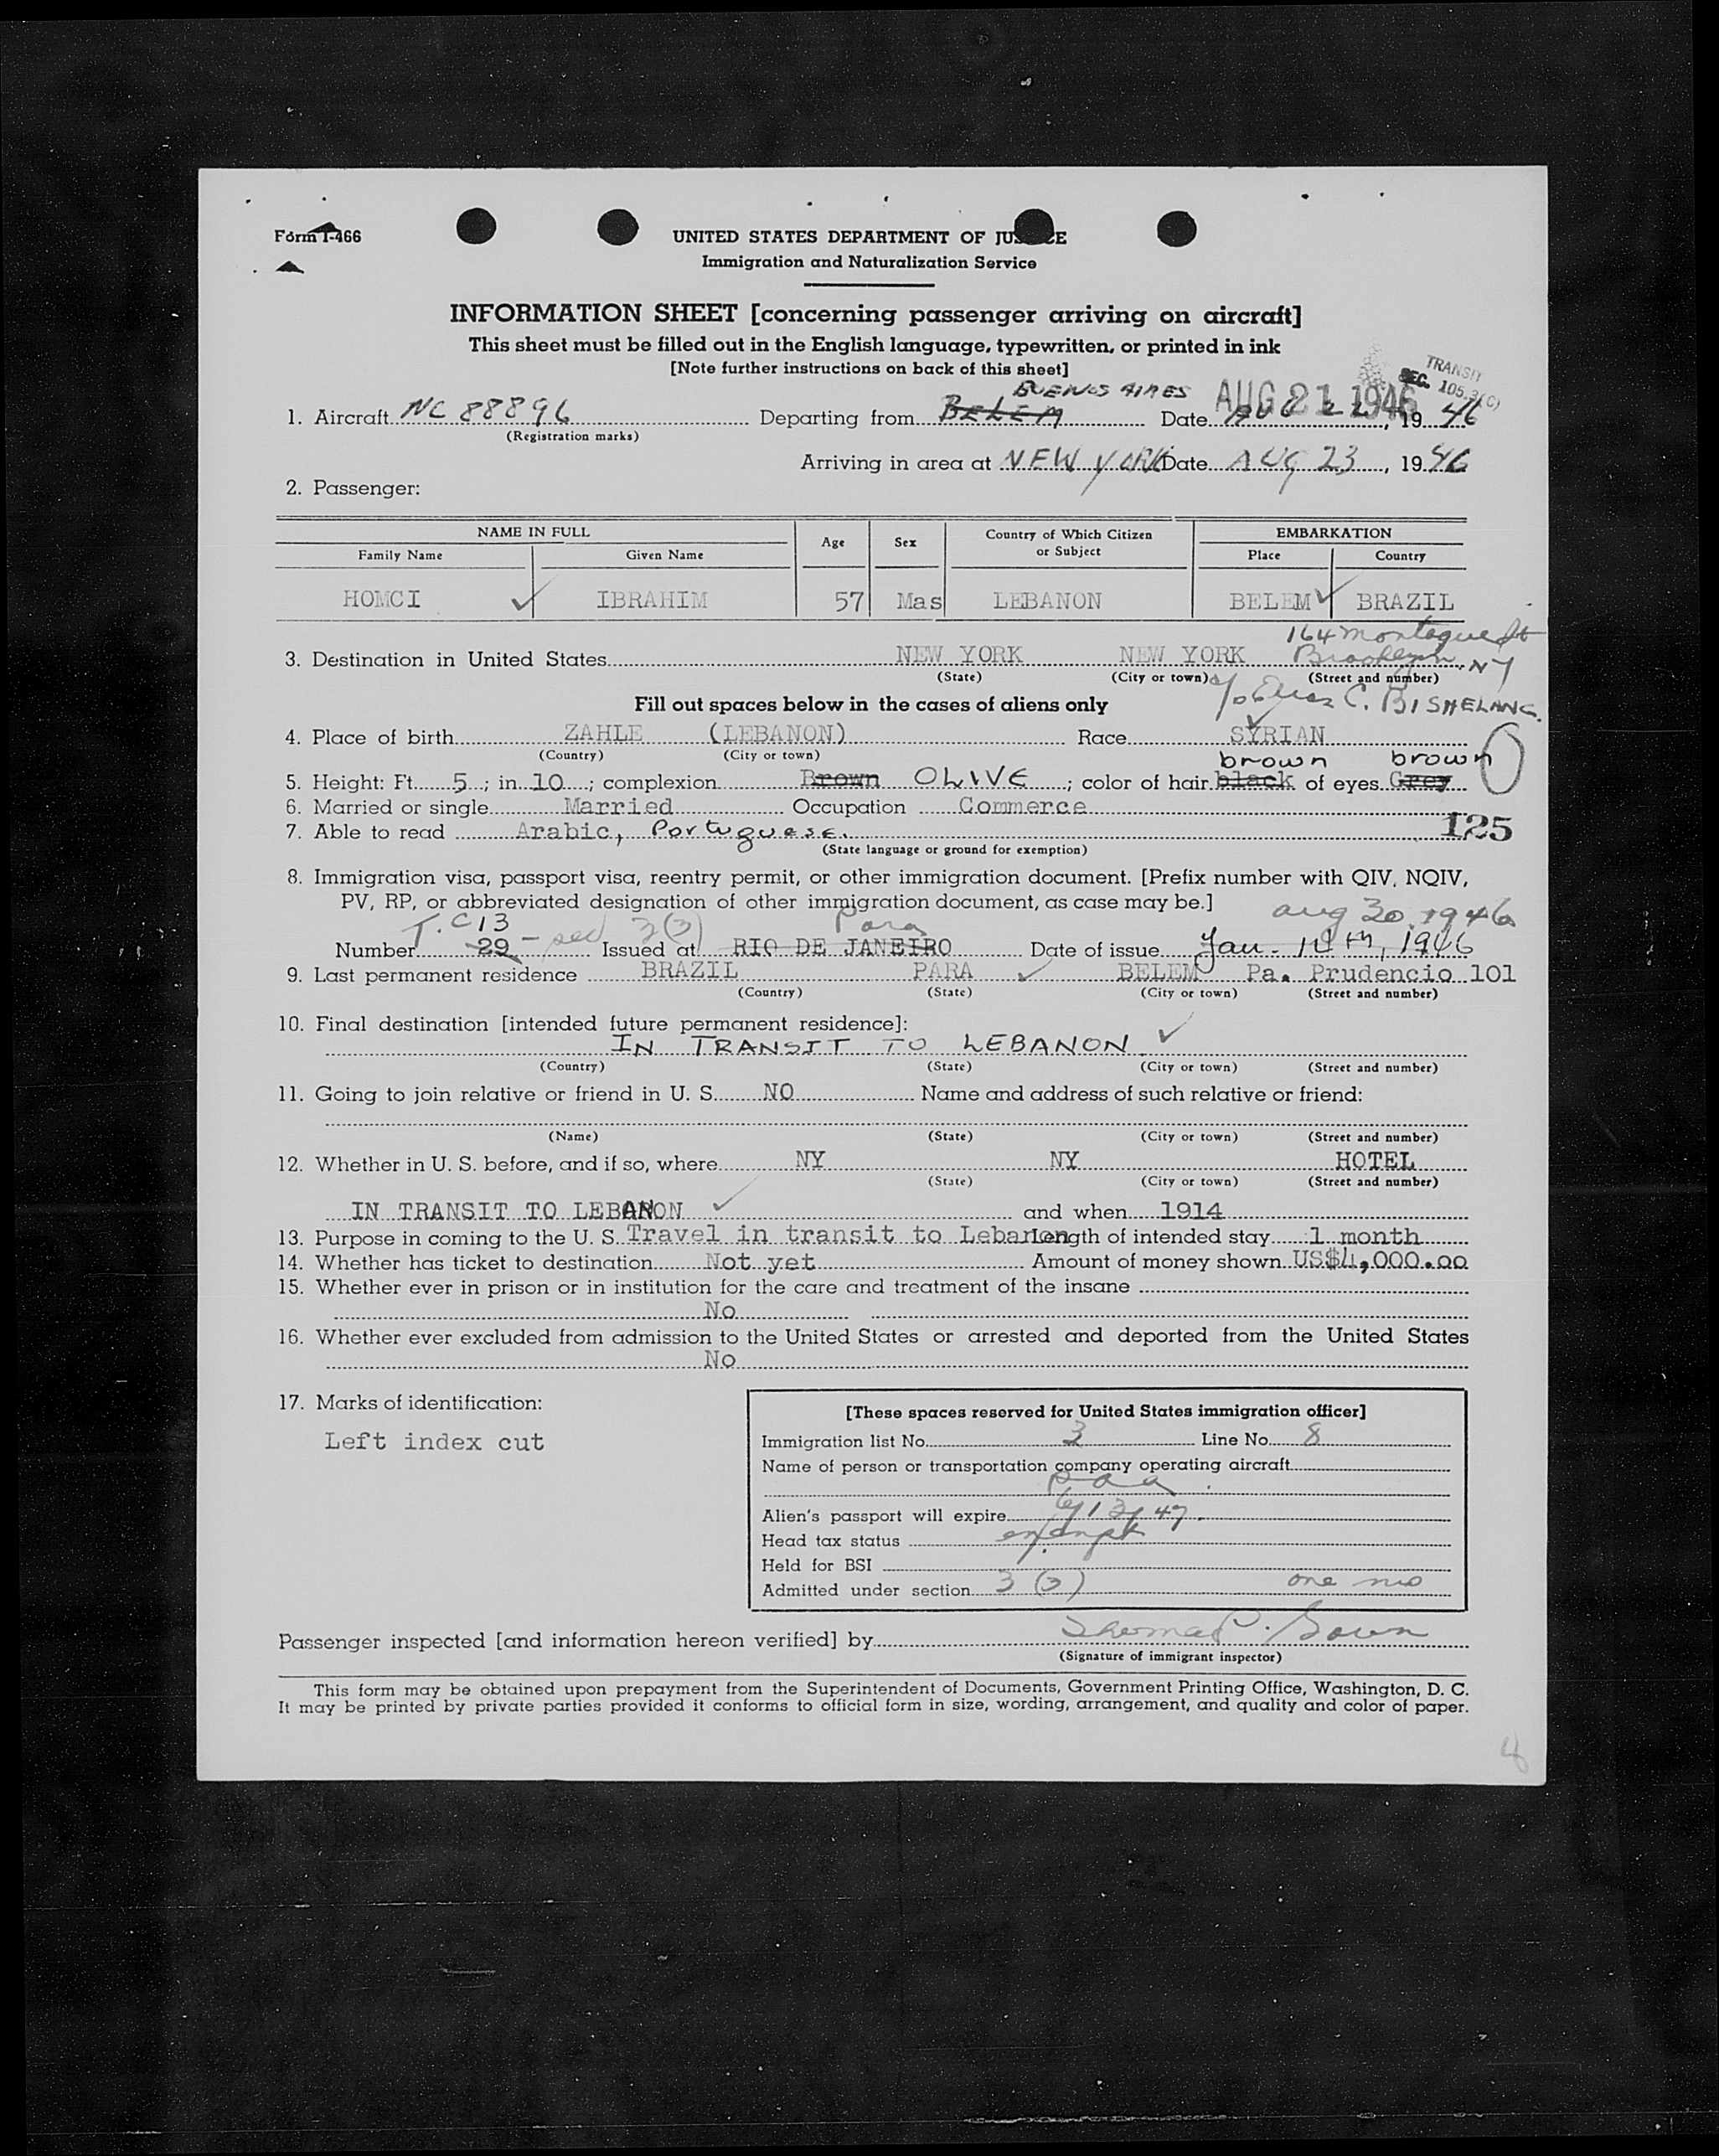 Form I-466
UNITED STATES DEPARTMENT OF JUSTICE
Immigration and Naturalization Service
INFORMATION SHEET [concerning passenger arriving on aircraft]
This sheet must be filled out in the English language, typewritten, or printed in ink
[Note further instructions on back of this sheet]
TRANSIT
SEC. 105.3(C)
BUENOS AIRES AUG 21 1946
1. Aircraft NC 88896 Departing from BELEM Date AUG 22, 19 46
(Registration marks)
Arriving in area at NEW YORK Date AUG 23, 19 46
2. Passenger:
NAME IN FULL Age Sex Country of Which Citizen or Subject EMBARKATION
Family Name Given Name Place Country
HOMCI IBRAHIM 57 Mas LEBANON BELEM BRAZIL
164 Montague St
3. Destination in United States NEW YORK NEW YORK Brooklyn, NY
(State) (City or town) (Street and number)
Fill out spaces below in the cases of aliens only
c/o Elias C. BISHELANG.
4. Place of birth ZAHLE (LEBANON) Race SYRIAN
(Country) (City or town)
brown brown
5. Height: Ft. 5; in. 10; complexion Brown OLIVE; color of hair black of eyes Grey
6. Married or single Married Occupation Commerce
7. Able to read Arabic, Portuguese. 125
(State language or ground for exemption)
8. Immigration visa, passport visa, reentry permit, or other immigration document. [Prefix number with QIV, NQIV,
PV, RP, or abbreviated designation of other immigration document, as case may be.]
T.C 13 3(3) Para aug 20, 1946
Number 29 - Issued at RIO DE JANEIRO Date of issue Jan. 14th, 1946
9. Last permanent residence BRAZIL PARA BELEM Pa. Prudencio 101
(Country) (State) (City or town) (Street and number)
10. Final destination [intended future permanent residence]:
IN TRANSIT TO LEBANON
(Country) (State) (City or town) (Street and number)
11. Going to join relative or friend in U. S. NO Name and address of such relative or friend:
(Name) (State) (City or town) (Street and number)
12. Whether in U. S. before, and if so, where NY NY HOTEL
(State) (City or town) (Street and number)
IN TRANSIT TO LEBANON and when 1914
13. Purpose in coming to the U. S. Travel in transit to Lebanon Length of intended stay 1 month
14. Whether has ticket to destination Not yet Amount of money shown US$4,000.00
15. Whether ever in prison or in institution for the care and treatment of the insane
No
16. Whether ever excluded from admission to the United States or arrested and deported from the United States
No
17. Marks of identification:
Left index cut
[These spaces reserved for United States immigration officer]
Immigration list No. 3 Line No. 8
Name of person or transportation company operating aircraft
P a a
Alien's passport will expire 6/13/47.
Head tax status exempt
Held for BSI
Admitted under section 3 (3) one mo
Passenger inspected [and information hereon verified] by
(Signature of immigrant inspector)
This form may be obtained upon prepayment from the Superintendent of Documents, Government Printing Office, Washington, D. C.
It may be printed by private parties provided it conforms to official form in size, wording, arrangement, and quality and color of paper.